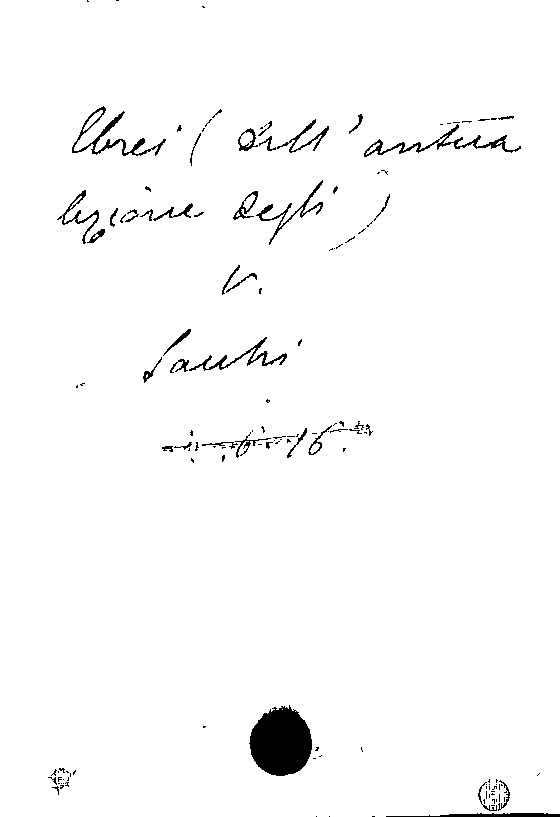 Ebrei (Dell'antica
lezione degli)
V.
Sacchi